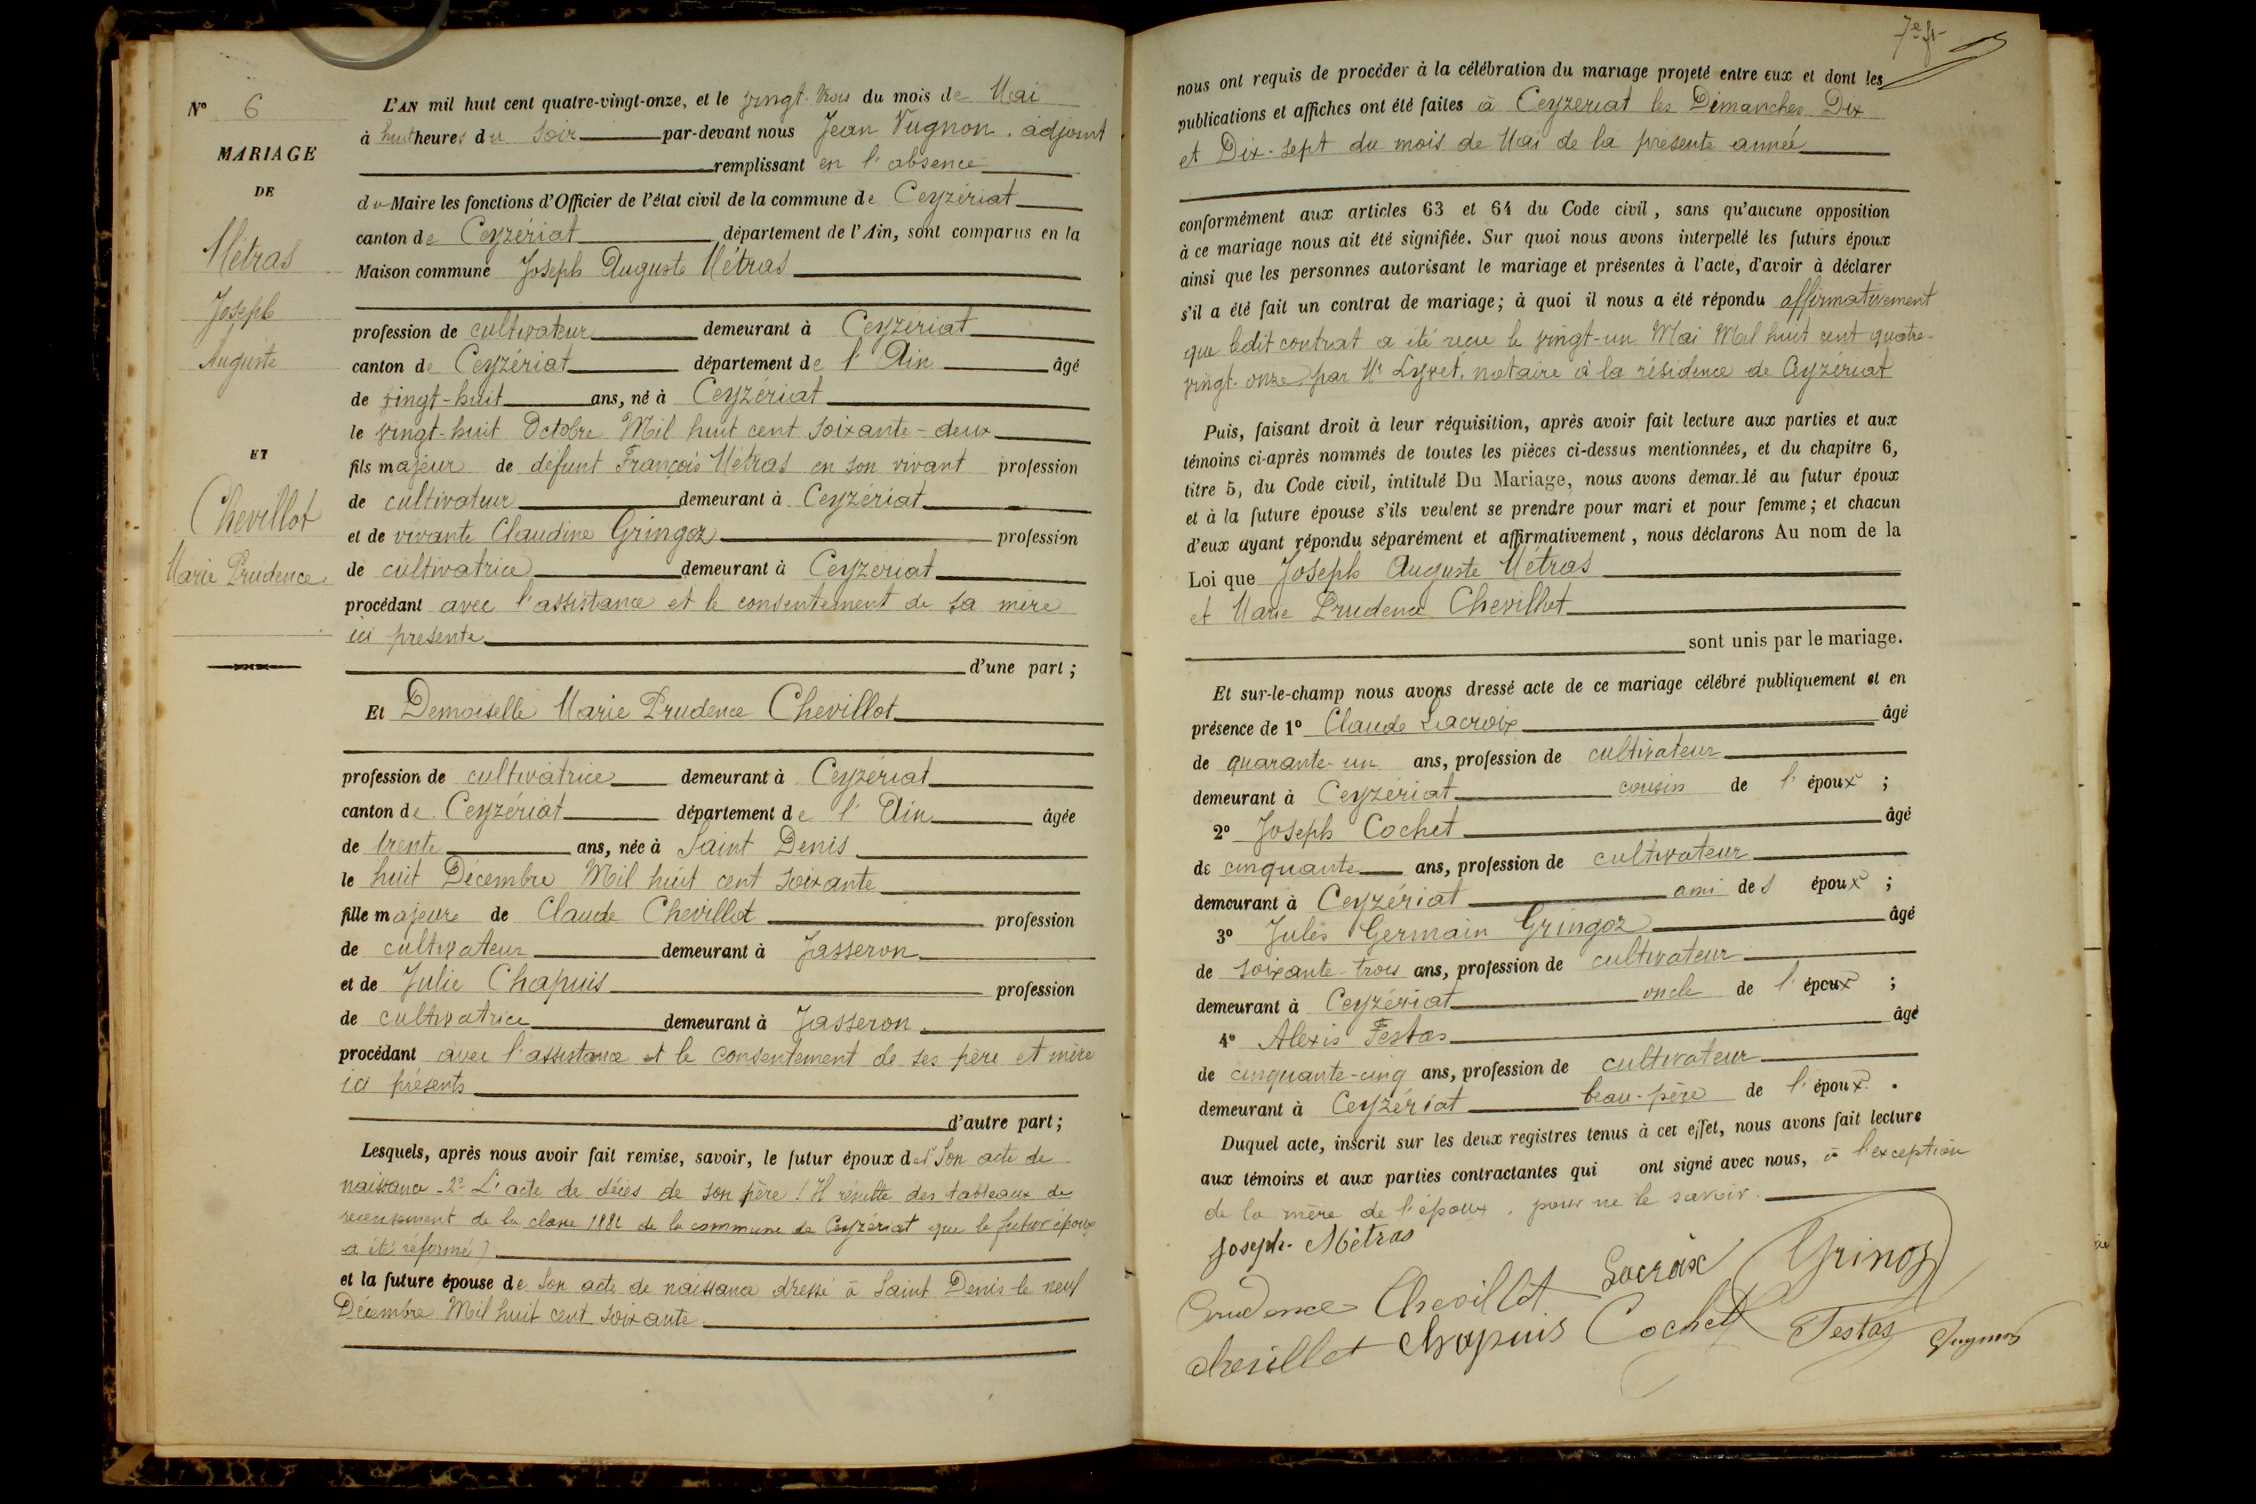 N° 6
MARIAGE
DE
Métras
Joseph
Auguste
ET
Chevillot
Marie Prudence
L'AN mil huit cent quatre-vingt-onze, et le vingt-trois du mois de Mai
à huit heures du soir par-devant nous Jean Vugnon, adjoint
remplissant en l'absence
du Maire les fonctions d'Officier de l'état civil de la commune de Ceyzériat
canton de Ceyzériat département de l'Ain, sont comparus en la
Maison commune Joseph Auguste Métras
profession de cultivateur demeurant à Ceyzériat
canton de Ceyzériat département de l'Ain âgé
de vingt-huit ans, né à Ceyzériat
le vingt-huit Octobre Mil huit cent soixante-deux
fils majeur de défunt François Métras en son vivant profession
de cultivateur demeurant à Ceyzériat
et de vivante Claudine Gringoz profession
de cultivatrice demeurant à Ceyzériat
procédant avec l'assistance et le consentement de sa mère
ici présente
d'une part ;
Et Demoiselle Marie Prudence Chevillot
profession de cultivatrice demeurant à Ceyzériat
canton de Ceyzériat département de l'Ain âgée
de trente ans, née à Saint Denis
le huit Décembre Mil huit cent soixante
fille majeure de Claude Chevillot profession
de cultivateur demeurant à Jasseron
et de Julie Chapuis profession
de cultivatrice demeurant à Jasseron
procédant avec l'assistance et le consentement de ses père et mère
ici présents
d'autre part ;
Lesquels, après nous avoir fait remise, savoir, le futur époux de 1° Son acte de
naissance - 2° L'acte de décès de son père (Il résulte des tableaux de
recensement de la classe 1882 de la commune de Ceyzériat que le futur époux
a été réformé)
et la future épouse de Son acte de naissance dressé à Saint Denis le neuf
Décembre Mil huit cent soixante
7e ft
nous ont requis de procéder à la célébration du mariage projeté entre eux et dont les
publications et affiches ont été faites à Ceyzériat les Dimanches Dix
et Dix-sept du mois de Mai de la présente année
conformément aux articles 63 et 64 du Code civil, sans qu'aucune opposition
à ce mariage nous ait été signifiée. Sur quoi nous avons interpellé les futurs époux
ainsi que les personnes autorisant le mariage et présentes à l'acte, d'avoir à déclarer
s'il a été fait un contrat de mariage; à quoi il nous a été répondu affirmativement
que ledit contrat a été reçu le vingt-un Mai Mil huit cent quatre-
vingt-onze par Me Lyvet, notaire à la résidence de Ceyzériat
Puis, faisant droit à leur réquisition, après avoir fait lecture aux parties et aux
témoins ci-après nommés de toutes les pièces ci-dessus mentionnées, et du chapitre 6,
titre 5, du Code civil, intitulé Du Mariage, nous avons demandé au futur époux
et à la future épouse s'ils veulent se prendre pour mari et pour femme; et chacun
d'eux ayant répondu séparément et affirmativement, nous déclarons Au nom de la
Loi que Joseph Auguste Métras
et Marie Prudence Chevillot
sont unis par le mariage.
Et sur-le-champ nous avons dressé acte de ce mariage célébré publiquement et en
présence de 1° Claude Lacroix âgé
de quarante-un ans, profession de cultivateur
demeurant à Ceyzériat cousin de l'époux ;
2° Joseph Cochet âgé
de cinquante ans, profession de cultivateur
demeurant à Ceyzériat ami des époux ;
3° Jules Germain Gringoz âgé
de soixante-trois ans, profession de cultivateur
demeurant à Ceyzériat oncle de l'époux ;
4° Alexis Festas âgé
de cinquante-cinq ans, profession de cultivateur
demeurant à Ceyzériat beau-père de l'époux.
Duquel acte, inscrit sur les deux registres tenus à cet effet, nous avons fait lecture
aux témoins et aux parties contractantes qui ont signé avec nous, à l'exception
de la mère de l'époux, pour ne le savoir.
joseph Métras
Prudence Chevillot Lacroix Gringoz
chevillot chapuis Cochet Festas Vugnon